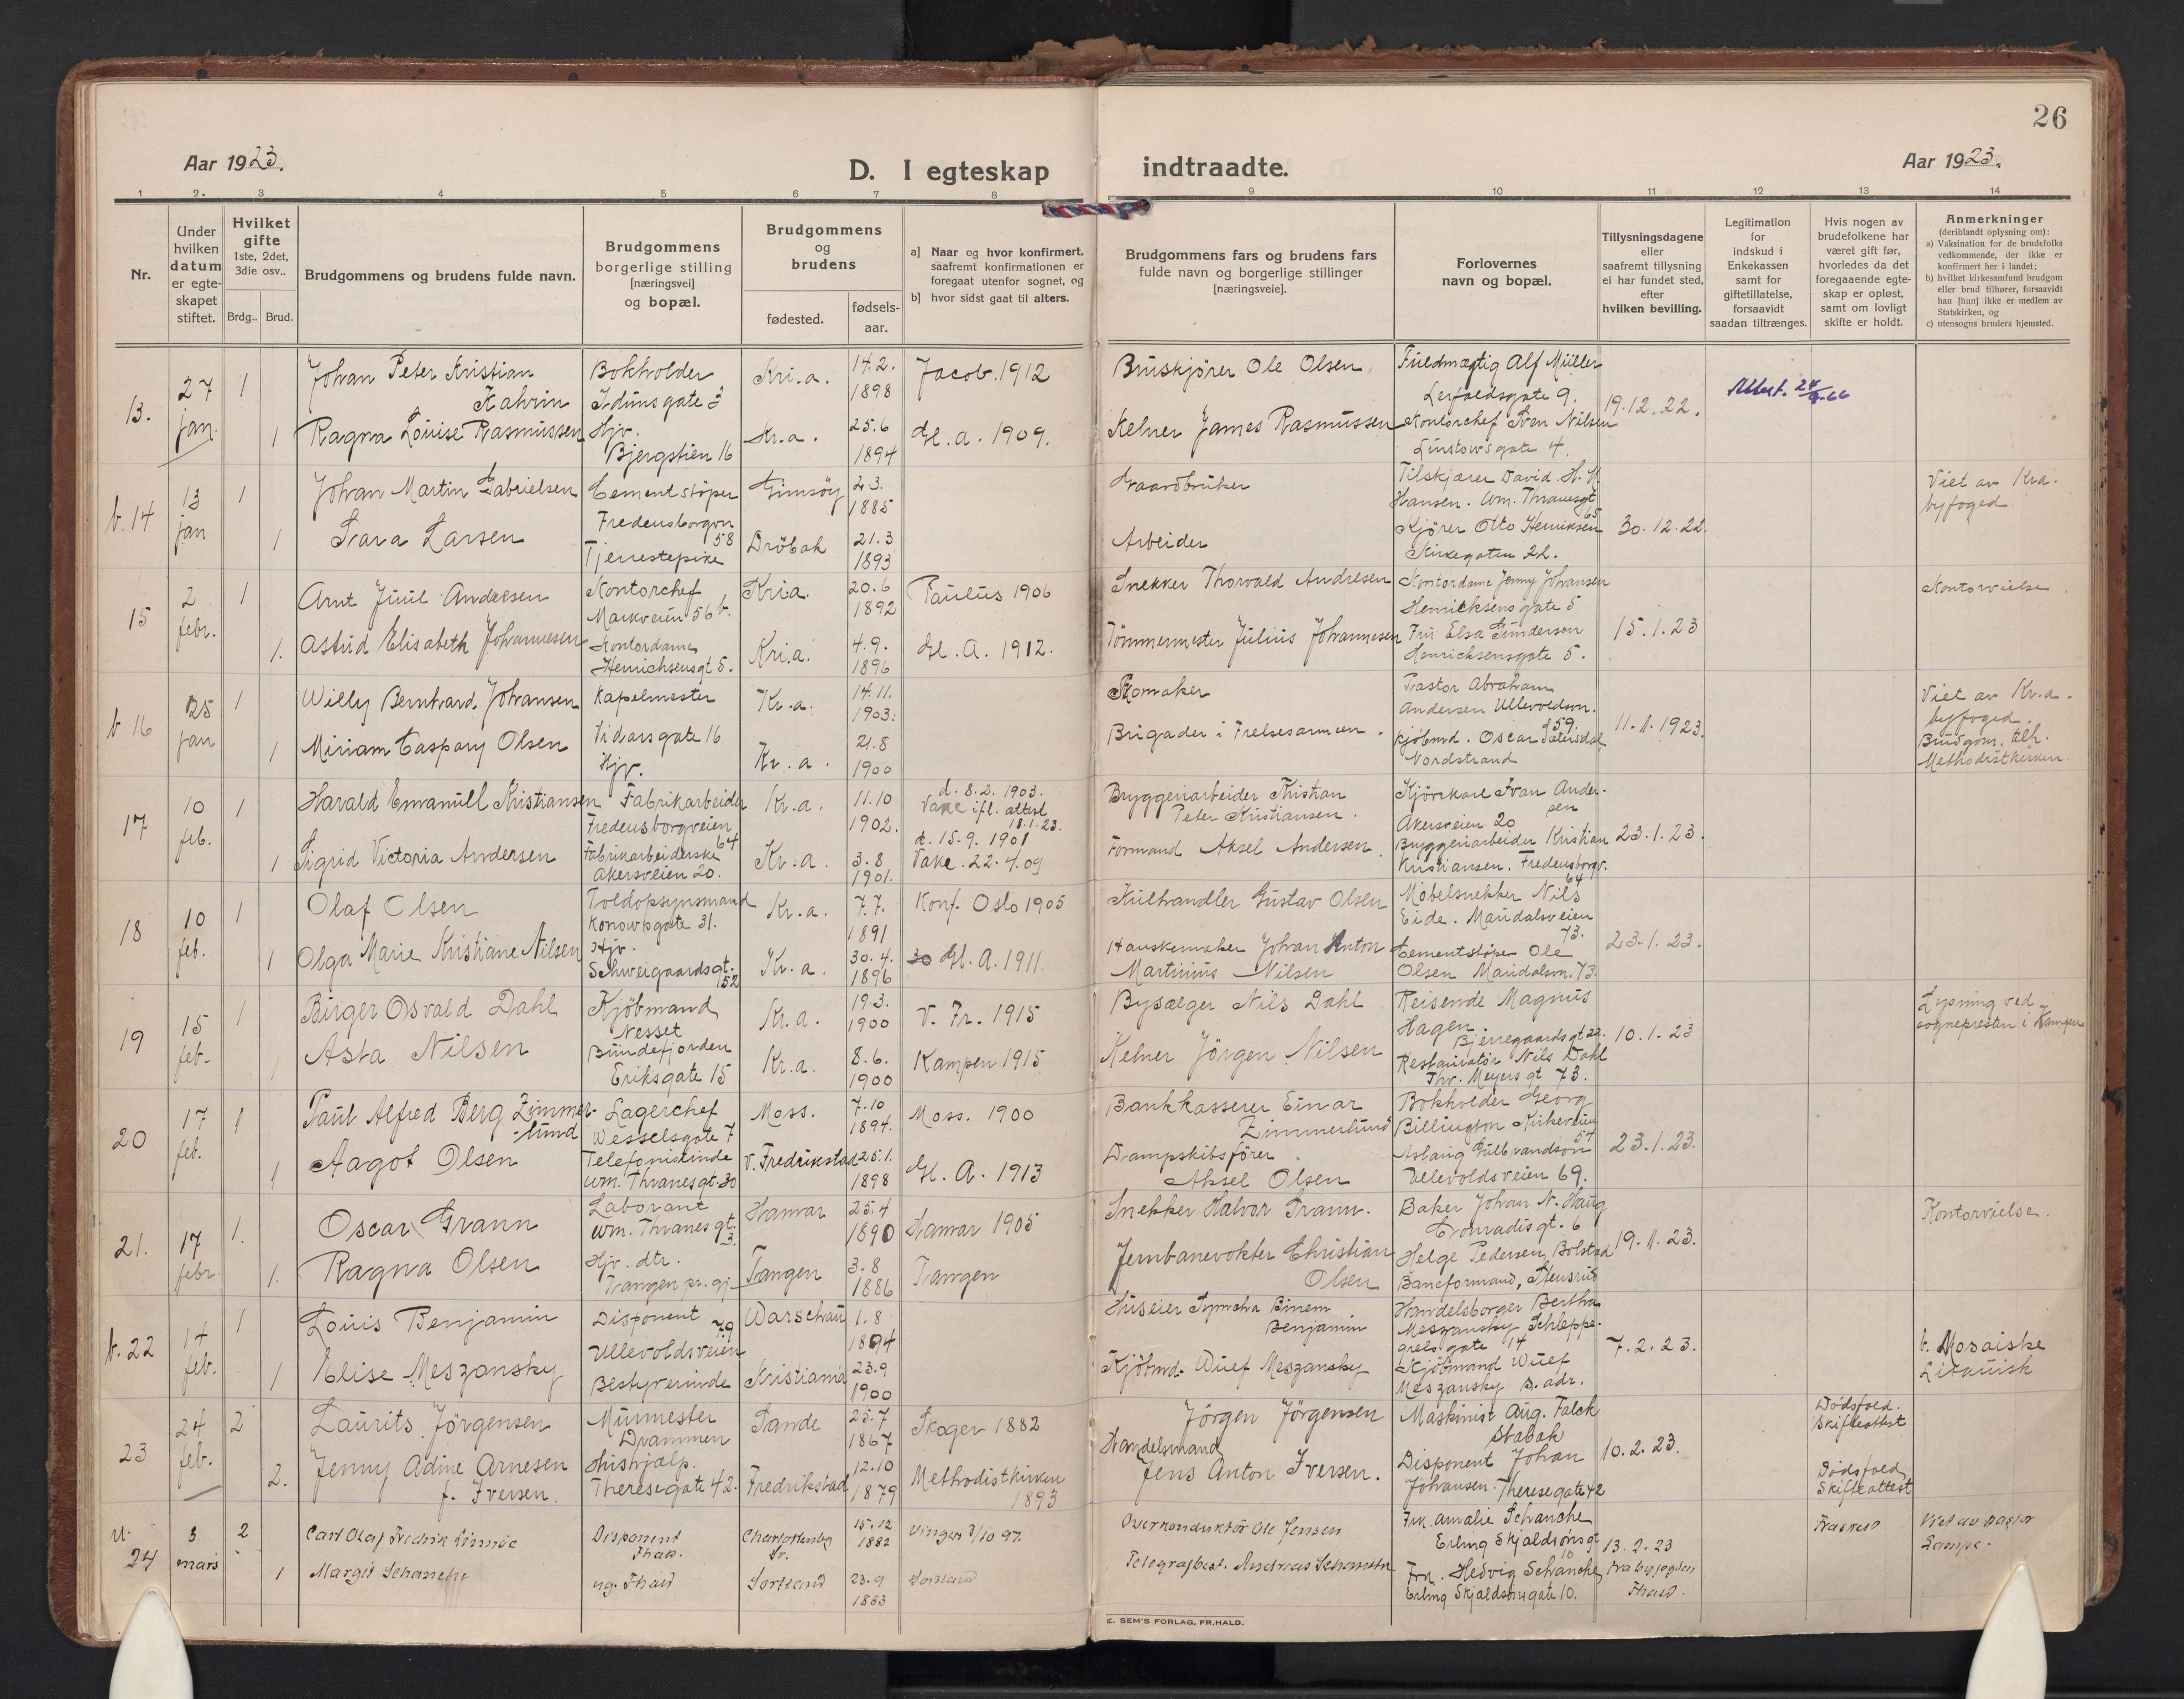 26
Aar 1923.
D. I egteskap indtraadte.
Aar 1923.
1 2. 3 4 5 6 7 8 9 10 11 12 13 14
Nr.
Under hvilken datum er egteskapet stiftet.
Hvilket gifte 1ste, 2det, 3die osv..
Brdg.. Brud.
Brudgommens og brudens fulde navn.
Brudgommens borgerlige stilling [næringsvei] og bopæl.
Brudgommens og brudens
fødested.
fødsels-aar.
a] Naar og hvor konfirmert, saafremt konfirmationen er foregaat utenfor sognet, og
b] hvor sidst gaat til alters.
Brudgommens fars og brudens fars fulde navn og borgerlige stillinger [næringsveie].
Forlovernes navn og bopæl.
Tillysningsdagene eller saafremt tillysning ei har fundet sted, efter hvilken bevilling.
Legitimation for indskud i Enkekassen samt for giftetillatelse, forsaavidt saadan tiltrænges.
Hvis nogen av brudefolkene har været gift før, hvorledes da det foregaaende egteskap er opløst, samt om lovligt skifte er holdt.
Anmerkninger (deriblandt oplysning om):
a) Vaksination for de brudefolks vedkommende, der ikke er konfirmert her i landet;
b) hvilket kirkesamfund brudgom eller brud tilhører, forsaavidt han [hun] ikke er medlem av Statskirken, og
c) utensogns bruders hjemsted.
13. 27 jan. 1 Johan Peter Kristian Kahrin Bokholder Idunsgate 3 Kri.a. 14.2. 1898 Jacob. 1912 Bruskjører Ole Olsen. Fuldmægtig Alf Müller 9. 19.12.22.
1 Ragna Louise Rasmussen Hjv. Bjergstien 16 Kr.a. 25.6 1894 Gl.a. 1909. Kelner James Rasmussen Kontorchef Sven Nilsen Linstowsgate 4.
b. 14 13 jan 1 Johan Martin Gabrielsen Cementstøper Fredensborgvn 58 Gimsøy 2.3. 1885 Gaardbruker Tilskjærer David H. H. Hansen. Wm. Thranesgt 65 30.12.22. Viet av Kra. byfoged
1 Lara Larsen Tjenestepike Drøbak 21.3 1893 Arbeider Kjører Otto Henriksen Kirkegaten 22.
15 2 febr. 1 Arnt Juul Andersen Kontorchef Markveien 56 b. Kria. 20.6 1892 Paulus 1906 Snekker Thorvald Andresen Kontordame Jenny Johansen Henricksens gate 5 15.1.23 Kontorvielse
1. Astrid Elisabeth Johannesen Kontordame Henrichsensgt 5. Kri.a. 4.9. 1896 Gl. A. 1912. Tømmermester Julius Johannesen Fru Elsa Gundersen Henricksensgate 5.
b 16 25 jan 1 Willy Bernhard. Johansen Kapelmester Vidarsgate 16 Kr.a. 14.11. 1903. Skomaker Pastor Abraham Andersen Ullevoldsvn. 59. 11.1.1923. Viet av Kr.a. byfoged. Brudgom. tilh. Methodistkirken.
1 Miriam Caspary Olsen Hjv. Kr.a. 21.8 1900 Brigader i Frelsesarmeen. Kjøbmd. Oscar Sætersdal Nordstrand
17 10 feb. 1 Harald Emanuell Kristiansen Fabrikarbeider Fredensborgveien 64 Kr.a. 11.10 1902. d. 8.2.1903. Vake ifl. attest 18.1.23. Bryggeriarbeider Kristian Peter Kristiansen. Kjørekarl Ivan Andersen Akersveien 20 23.1.23.
1 Sigrid Victoria Andersen Fabrikarbeiderske Akersveien 20. Kr.a. 3.8 1901. d. 15.9.1901 Vake. 22.4.09 Formand Aksel Andersen. Bryggeriarbeider Kristian Kristiansen. Fredensborgv. 64
18 10 feb. 1 Olaf Olsen Toldopsynsmand Konowsgate 31. Kr.a. 7.7. 1891 Konf. Oslo 1905 Kulhandler Gustav Olsen Møbelsnekker Nils Eide. Maridalsveien 73. 23.1.23.
1 Olga Marie Kristiane Nilsen Hjv. Schweigaardsgt. 52 Kr.a. 30.4. 1896 30 Gl. A. 1911. Hanskemaker Johan Anton Martinius Nilsen Cementstøper Ole Olsen Maridalsvn. 73.
19 15 feb. 1 Birger Osvald Dahl Kjøbmand Nesset Bundefjorden Kr.a. 19.3. 1900 V. Fr. 1915 Bysælger Nils Dahl Reisende Magnus Hagen. Bjerregaardsgt 22. 10.1.23 Lysning ved sogneprestsen i Kampen
1 Asta Nilsen Eriksgate 15 Kr.a. 8.6. 1900 Kampen 1915 Kelner Jörgen Nilsen Restauratør Nils Dahl Thv. Meyers gt 73.
20 17 feb. 1 Paul Alfred Berg Zimmer-lund Lagerchef Wesselsgate 7 Moss. 7.10 1894. Moss. 1900 Bankkasserer Einar Zimmerlund Bokholder Georg Billington Kirkeveien 57 23.1.23.
1 Aagot Olsen Telefonistinde Wm. Thranesgt. 30 V. Fredrikstad 25.1. 1898 Gl. A. 1913 Dampskibsfører Aksel Olsen Aslaug Gulbrandson Ullevoldsveien 69.
21. 17 febr. 1. Oscar Grann Laborant Wm. Thranes gt. 3. Hamar 25.4 1890 Hamar 1905 Snekker Halvor Grann. Baker Johan N. Haug Conradisgt. 6 19.1.23. Kontorvielse.
1. Ragna Olsen Hjv. dtr. Tangen Tangen 3.8 1886 Tangen Jernbanevokter Christian Olsen Helge Pedersen, Bolstad Baneformand, Stensrud
b. 22 14 feb. 1 Louis Benjamin Disponent 79 Ullevoldsveien Warschau 1.8 1894 Huseier Symcha Binem Benjamin Handelsborger Bertha Meszansky Schleppegrels gate 14 7.2.23. b. Mosaiske Litauisk
1 Elise Meszansky Bestyrerinde Kristiania 23.9 1900 Kjøbmd. Wulf Meszansky Kjøbmand Wulf Meszansky s. adr.
23 24 feb. 2 Laurits Jörgensen Murmester Drammen Sande 25.7 1867 Skoger 1882 Jörgen Jörgensen Maskinist Aug. Falck Stabæk 10.2.23. Dødsfald. Skifteattest
2. Jenny Adine Arnesen f. Iversen. Hushjælp. Theresegate 42. Fredrikstad 12.10 1879 Methodistkirken 1893 Handelsmand Jens Anton Iversen. Disponent Johan Johansen. Theresegate 42 Dødsfald, Skifteattest
24 3 mars 2 Carl Olaf Fredrik Disponent Charlottenberg Sv. 15.12 1882 Vinger 3/10 97. Overkonduktør Ole Jensen Frk. Amalie Schanche Erling Skjaldsonsgt 10 13.2.23 Fraskilt Viet av Pastor
1 Margit Schanche Sortland 23.9 1883 Sortland Telegrafbest. Andreas Schanche Frk. Hedvig Schanche, Erling Skjaldsonsgate 10.
E. SEM'S FORLAG, FR.HALD.